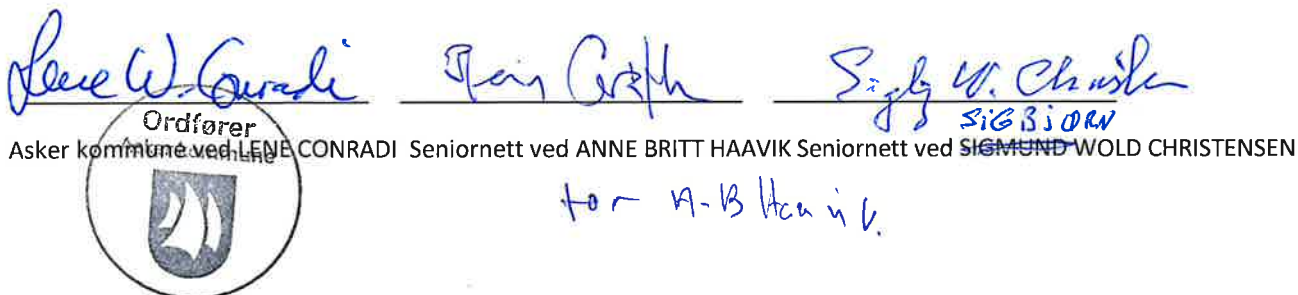 Lene W. Conradi
Sigbj W. Christen
SiGBJØRN
Ordfører
Asker kommune
Asker kommune ved LENE CONRADI Seniornett ved ANNE BRITT HAAVIK Seniornett ved SIGMUND WOLD CHRISTENSEN
for A-B Haavik.